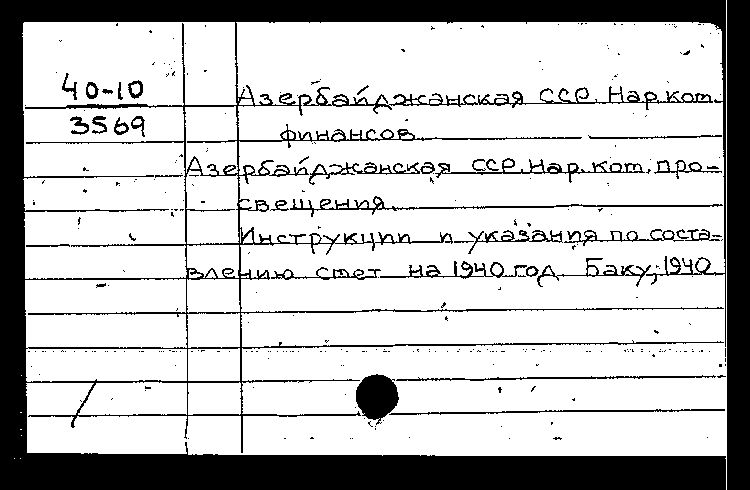 40-10
3569
Азербайджанская ССР. Нар.ком.
финансов.
Азербайджанская ССР. Нар.ком. про-
свещения.
Инструкции и указания по соста-
влению смет на 1940 год. Баку, 1940.